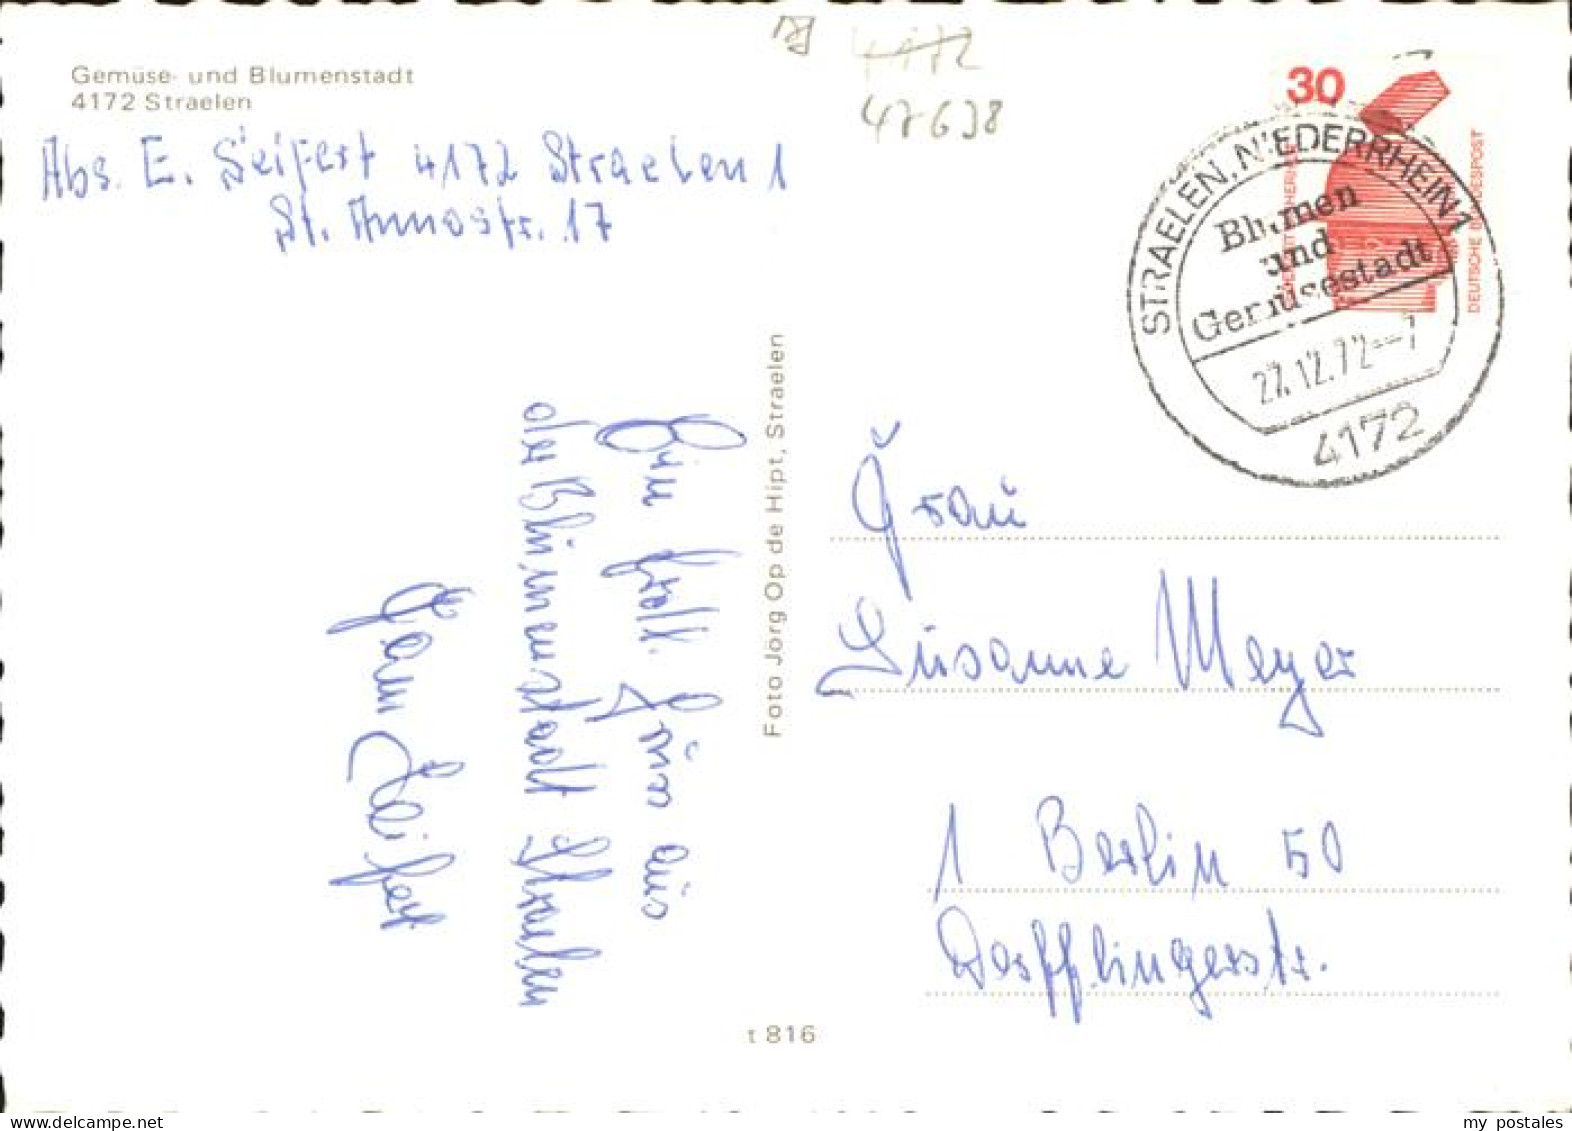 Gemüse- und Blumenstadt
4172 Straelen
Abs. E. Seifert 4172 Straelen 1
St. Annastr. 17
4172
47638
30
DEUTSCHE BUNDESPOST
STRAELEN, NIEDERRHEIN 1
Blumen
und
Gemüsestadt
27.12.72--7
4172
Foto Jörg Op de Hipt, Straelen
Ein herzl. Grüss aus
der Blumenstadt Straelen
Fam Seifert
Frau
Susanne Meyer
1 Berlin 50
Dorfflingerstr.
t 816
www.delcampe.net
my_postales